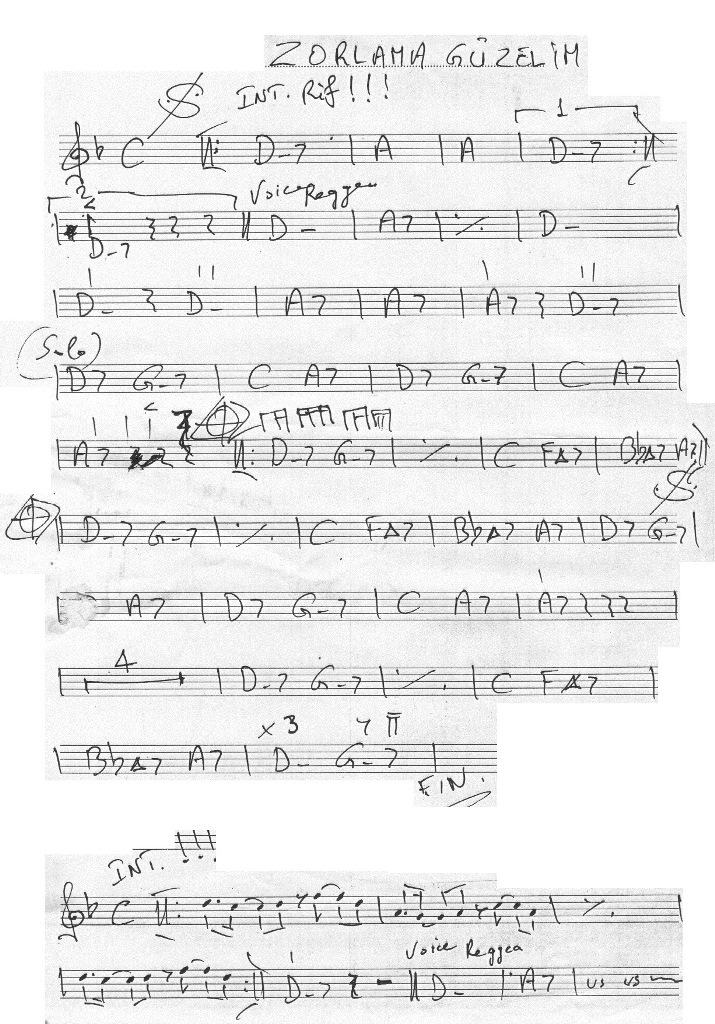 ZORLAMA GÜZELİM
INT. Rif !!!
1
C D-7 | A | A | D-7
2 Voice Reggea
D-7 D- | A7 | ٪ | D-
D- D- | A7 | A7 | A7 D-7
(Solo)
D7 G-7 | C A7 | D7 G-7 | C A7
A7 D-7 G-7 | ٪ | C FΔ7 | B♭Δ7 A7
D-7 G-7 | ٪ | C FΔ7 | B♭Δ7 A7 | D7 G-7 |
A7 | D7 G-7 | C A7 | A7
4 | D-7 G-7 | ٪ | C FΔ7 |
x 3
B♭Δ7 A7 | D- G-7 |
FIN.
INT. !!!
C
Voice Reggea
D-7 D- | A7 |